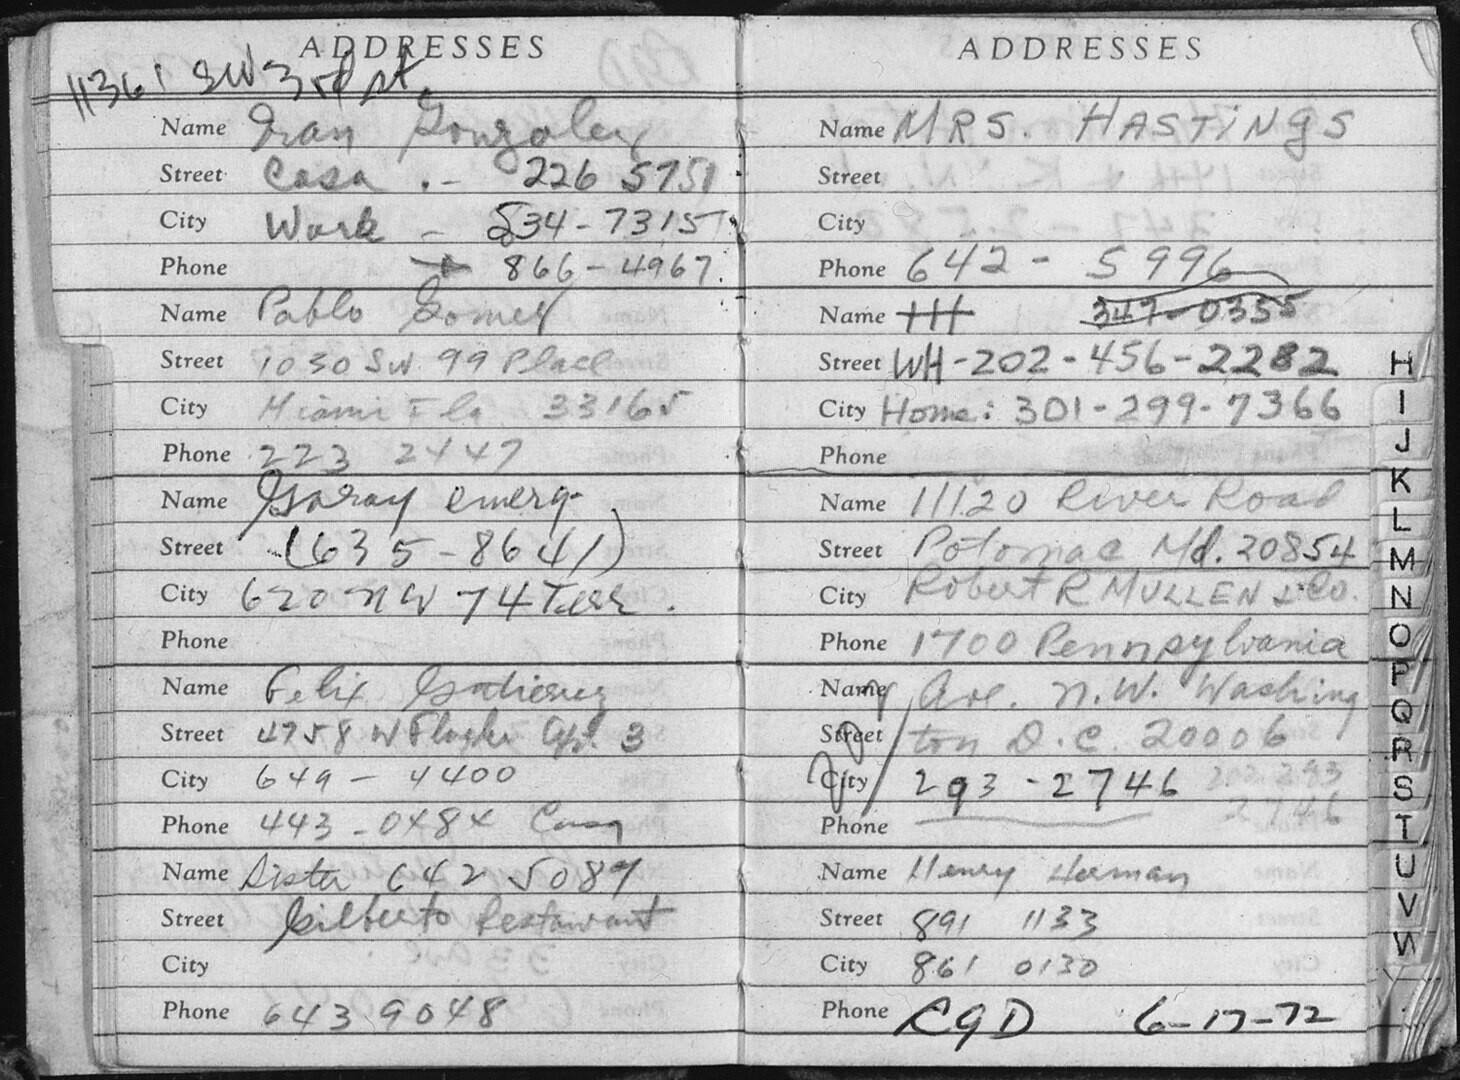 ADDRESSES
11361 SW 3rd st.
Name Ivan Gonzalez
Street Casa . - 226 5751
City Work - 534-7315
Phone 866-4967
Name Pablo Gomez
Street 1030 SW 99 Place
City Miami Fla 33165
Phone 223 2447
Name Garay emerg-
Street (635-8641)
City 620 NW 74 Terr.
Phone
Name Felix Gutierrez
Street 4758 W Flagler Apt. 3
City 649 - 4400
Phone 443-0484 Casa
Name Sister 642 5089
Street Gilberto Restaurant
City
Phone 643 9048
ADDRESSES
Name MRS. HASTINGS
Street
City
Phone 642 - 5996
Name HH 347-0355
Street WH-202-456-2282
City Home: 301-299-7366
Phone
Name 11120 River Road
Street Potomac Md. 20854
City Robert R MULLEN & Co.
Phone 1700 Pennsylvania
Name Ave. N.W. Washing
Street ton D.C. 20006
City 293-2746 202 293
Phone 2746
Name Henry Herman
Street 891 1133
City 861 0130
Phone CGD 6-17-72
H
I
J
K
L
M
N
O
P
Q
R
S
T
U
V
W